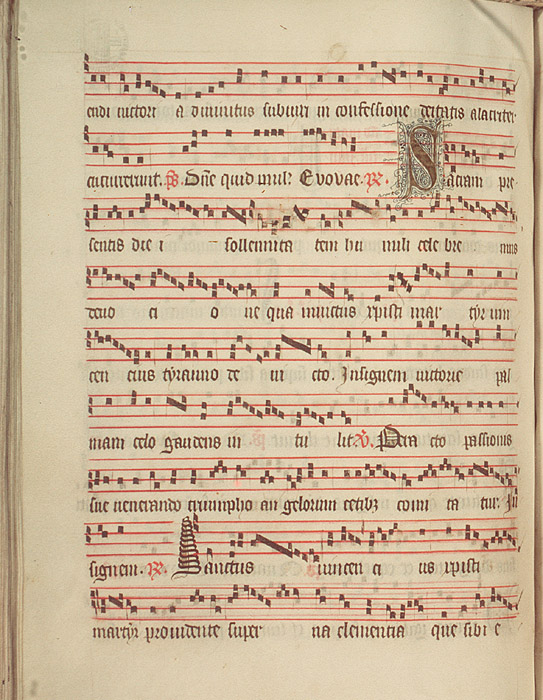 endi victori a divinitus subiuit in confessione deitatis alacriter
cucurrerunt. ps. Dne quid mul. Evovae. R. Sacram pre
sentis diei sollennita tem hu mili cele bre mus
devo ci o ne qua invictus xpisti mar tyr vin
cen cius tyranno de vi cto. Insignem victorie pal
mam celo gaudens in tu lit. V. Pera cto passionis
sue venerando triumpho an gelorum cetibz comi ta tur. In
signem. R. Sanctus vincen ci us xpisti
martyr providente super na clementia que sibi e